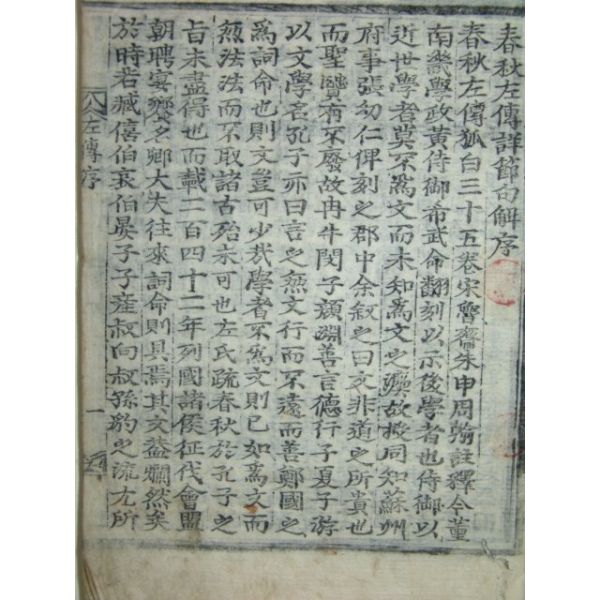 春秋左傳詳節句解序
春秋左傳狐白三十五卷宋魯齋朱申周翰註釋今董
南畿學政黃侍御希武命翻刻以示後學者也侍御以
近世學者莫不爲文而未知爲文之故授同知蘇州
府事張幼仁俾刻之郡中余叙之曰文非道之所貴也
而聖贒有不廢故冉牛閔子顔淵善言德行子夏子游
以文學名孔子亦曰言之無文行而不遠而善鄭國之
爲詞命也則文豈可少哉學者不爲文則已如爲文而
無法法而不取諸古殆未可也左氏疏春秋於孔子之
旨未盡得也而載二百四十二年列國諸侯征伐會盟
朝聘宴饗名卿大夫往來詞命則具焉其文盖爛然矣
於時若臧僖伯哀伯晏子子產叔向叔孫豹之流尤所
左傳序
一